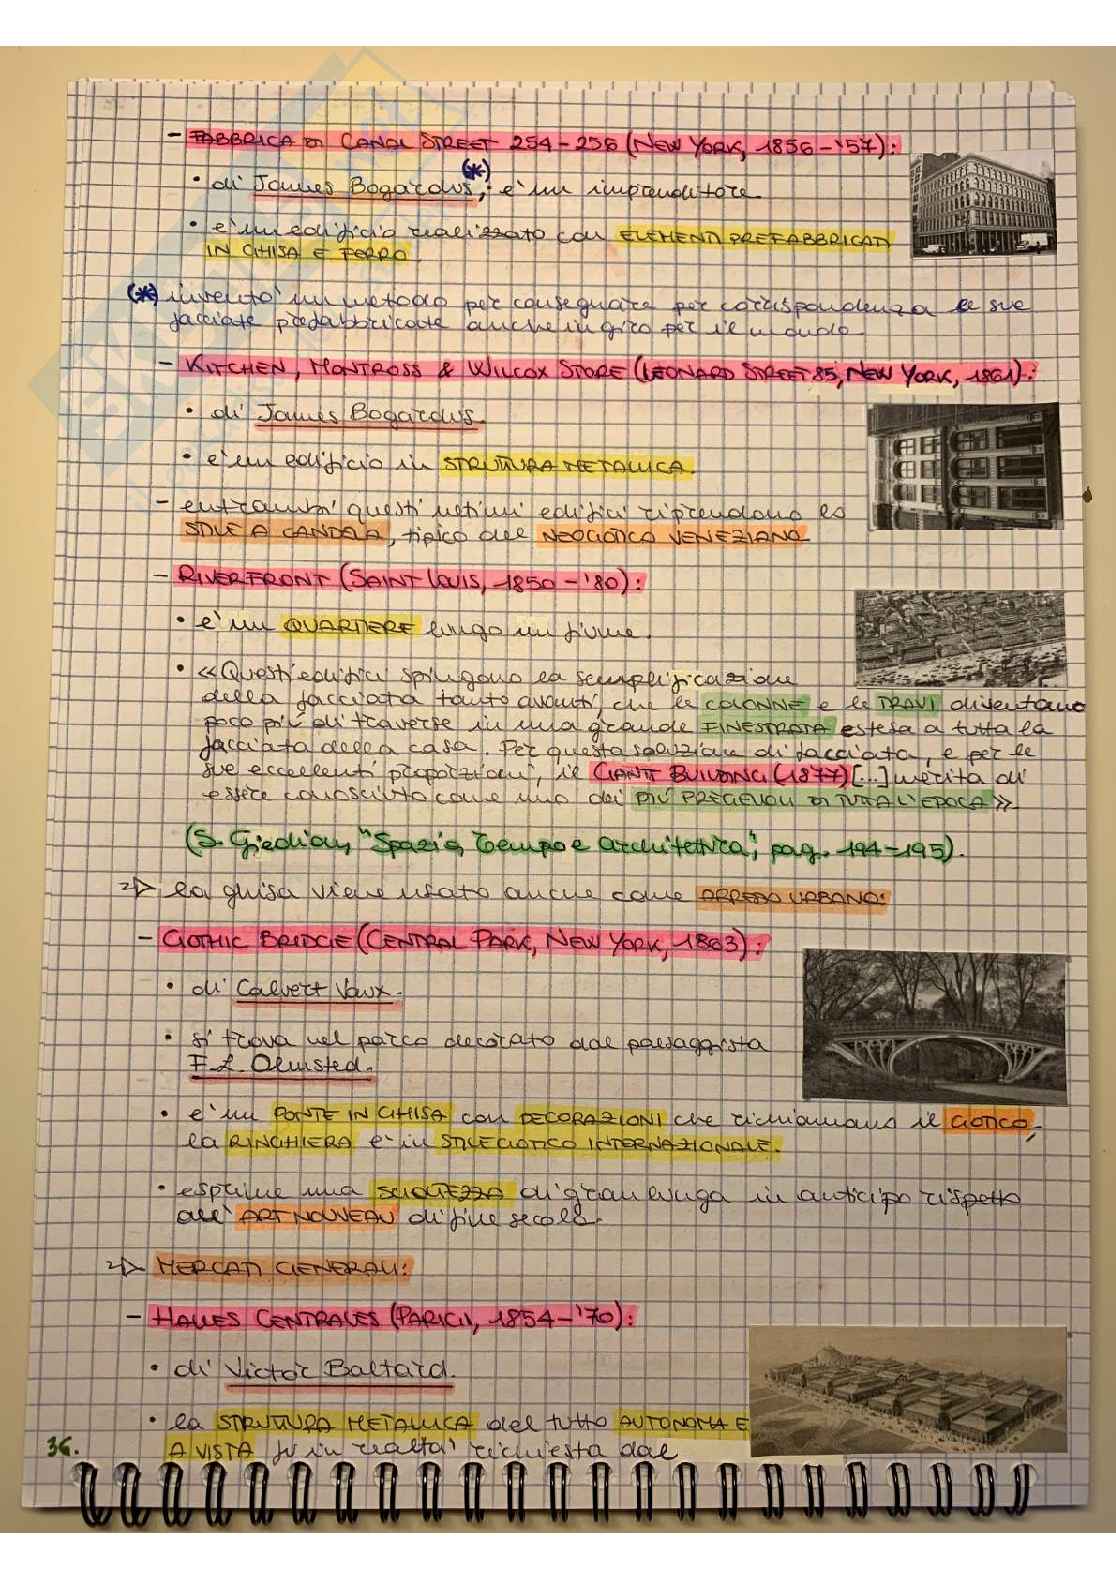 - FABBRICA DI CANAL STREET 254-256 (NEW YORK, 1856-'57):
• di James Bogardus (*), è un imprenditore
• è un edificio realizzato con ELEMENTI PREFABBRICATI
IN GHISA E FERRO.
(*) inventò un metodo per consegnare per corrispondenza le sue
facciate prefabbricate anche in giro per il mondo.
- KITCHEN, MONTROSS & WILCOX STORE (LEONARD STREET 85, NEW YORK, 1861):
• di James Bogardus.
• è un edificio in STRUTTURA METALLICA.
- entrambi questi ultimi edifici riprendono lo
STILE A CANDELA, tipico del NEOGOTICO VENEZIANO
- RIVERFRONT (SAINT LOUIS, 1850-'80):
• è un QUARTIERE lungo un fiume.
• «Questi edifici spingono la semplificazione
della facciata tanto avanti, che le COLONNE e le TRAVI diventano
poco più di traverse in una grande FINESTRATA estesa a tutta la
facciata della casa. Per questa soluzione di facciata, e per le
sue eccellenti proporzioni, il GANTT BUILDING (1877) [...] merita di
essere conosciuto come uno dei PIÙ PREGEVOLI DI TUTTA L'EPOCA».
(S. Giedion, "Spazio, Tempo e architettura", pag. 194-195).
la ghisa viene usato anche come ARREDO URBANO:
- GOTHIC BRIDGE (CENTRAL PARK, NEW YORK, 1863):
• di Calvert Vaux.
• si trova nel parco decorato dal paesaggista
F.L. Olmsted.
• è un PONTE IN GHISA con DECORAZIONI che richiamano il GOTICO,
la RINGHIERA è in STILE GOTICO INTERNAZIONALE.
• esprime una SCIOLTEZZA di gran lunga in anticipo rispetto
all'ART NOUVEAU di fine secolo.
MERCATI GENERALI:
- HALLES CENTRALES (PARIGI, 1854-'70):
• di Victor Baltard.
• la STRUTTURA METALLICA del tutto AUTONOMA E
A VISTA fu in realtà richiesta dal
36.